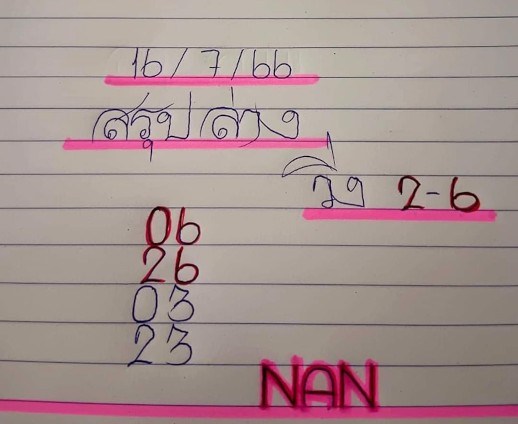 16/7/66
สรุปล่าง
วิ่ง 2-6
06
26
03
23
NAN